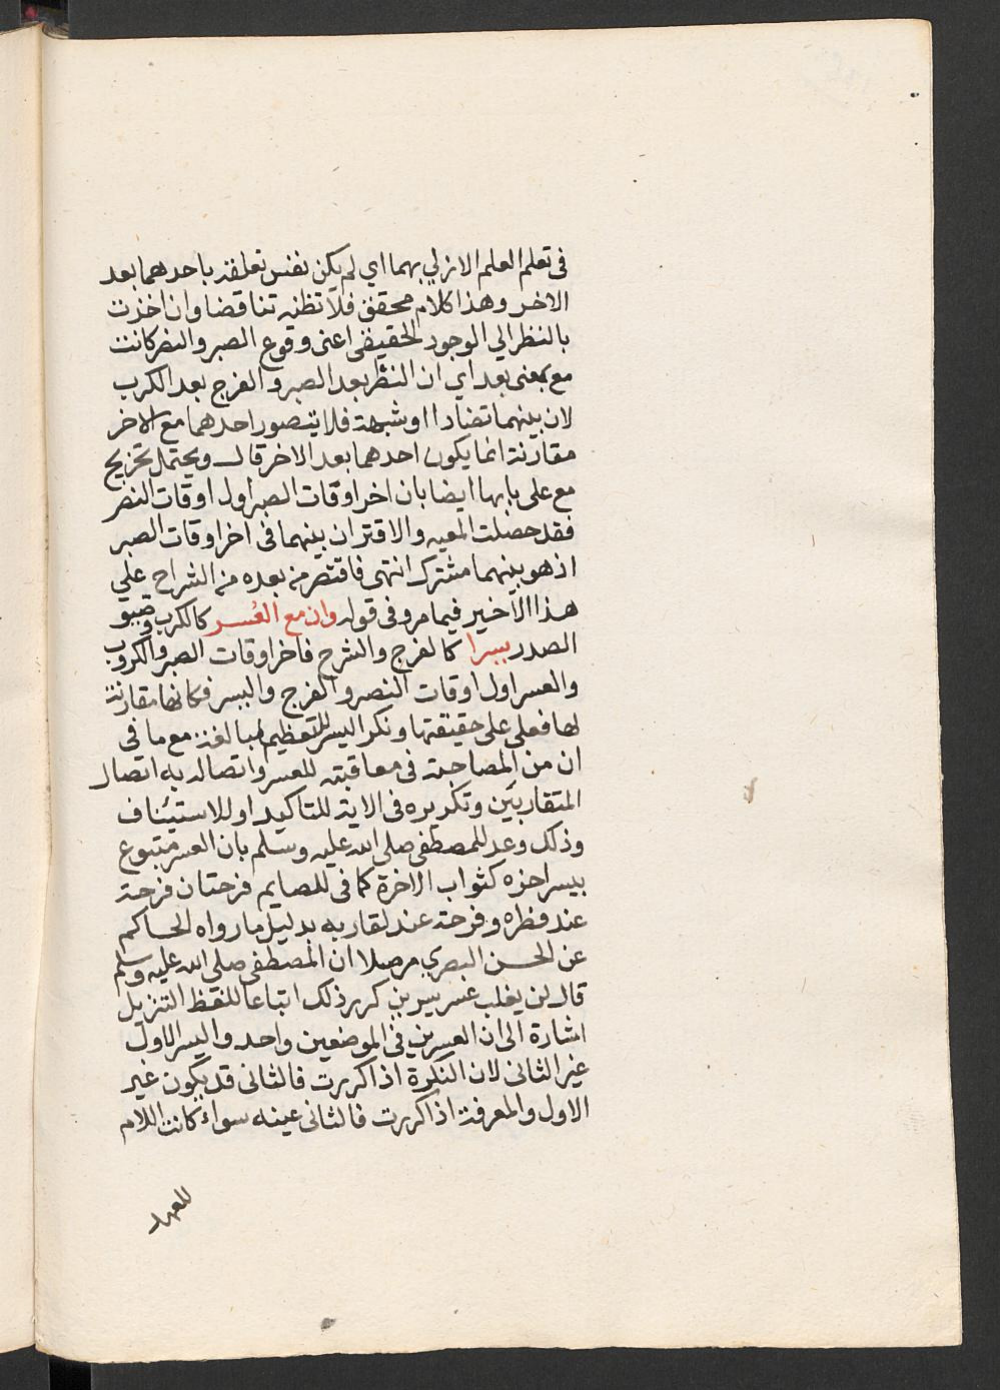 فى تعلم العلم الازلي بهما اي لم يكن نفس تعلقه باحدهما بعد
الاخر وهذا كلام محقق فلا تظنه تناقضا وان اخذت
بالنظر الي الوجود الحقيقى اعنى وقوع الصبر والنصر كانت
مع بمعنى بعد اي ان النصر بعد الصبر والفرج بعد الكرب
لان بينهما تضادا او شبهه فلا يتصور احدهما مع الاخر
مقارنة انما يكون احدهما بعد الاخر قال ويحتمل تخريج
مع على بابها ايضا بان اخر اوقات الصبر اول اوقات النصر
فقد حصلت المعيه والاقتران بينهما فى اخر اوقات الصبر
اذ هو بينهما مشترك انتهى فاقتصر من بعده من الشراح علي
هذا الاخير فيما مر وفى قوله وان مع العُسر كالكرب وضيق
الصدر يسرا كالفرج والشرح فاخر اوقات الصبر والكروب
والعسر اول اوقات النصر والفرج واليسر فكانها مقارنة
لها فعلى على حقيقتها ونكر اليسر للتعظيم لمبالغة مع ما فى
ان من المصاحبة فى معاقبته للعسر واتصاله به اتصال
المتقاربين وتكريره فى الاية للتاكيد او للاستيناف
وذلك وعد للمصطفى صلى الله عليه وسلم بان العسر متبوع
بيسر اخره كثواب الاخرة كما فى للصايم فرحتان فرحة
عند فطره وفرحة عند لقا ربه بدليل ما رواه الحاكم
عن الحسن البصري مرصلا ان المصطفى صلى الله عليه وسلم
قال لن يغلب عسر يسرين كرر ذلك اتباعا للفظ التنزيل
اشارة الى ان العسرين فى الموضعين واحد واليسر الاول
غير الثانى لان النكرة اذا كررت فالثانى قد يكون غير
الاول والمعرفة اذا كررت فالثانى عينه سواء كانت اللام
للعهد